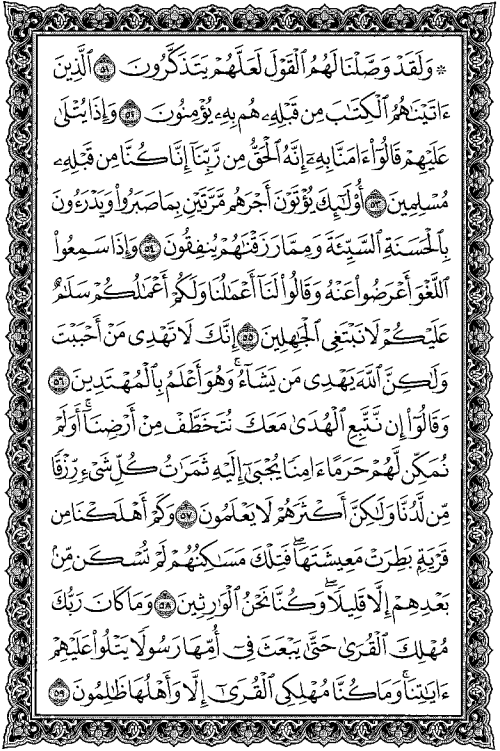 * وَلَقَدْ وَصَّلْنَا لَهُمُ الْقَوْلَ لَعَلَّهُمْ يَتَذَكَّرُونَ ٥١ الَّذِينَ
ءَاتَيْنَاهُمُ الْكِتَابَ مِن قَبْلِهِۦ هُم بِهِۦ يُؤْمِنُونَ ٥٢ وَإِذَا يُتْلَى
عَلَيْهِمْ قَالُوٓا۟ ءَامَنَّا بِهِۦٓ إِنَّهُ الْحَقُّ مِن رَّبِّنَآ إِنَّا كُنَّا مِن قَبْلِهِۦ
مُسْلِمِينَ ٥٣ أُو۟لَٰٓئِكَ يُؤْتَوْنَ أَجْرَهُم مَّرَّتَيْنِ بِمَا صَبَرُوا۟ وَيَدْرَءُونَ
بِالْحَسَنَةِ السَّيِّئَةَ وَمِمَّا رَزَقْنَاهُمْ يُنفِقُونَ ٥٤ وَإِذَا سَمِعُوا۟
اللَّغْوَ أَعْرَضُوا۟ عَنْهُ وَقَالُوا۟ لَنَآ أَعْمَالُنَا وَلَكُمْ أَعْمَالُكُمْ سَلَامٌ
عَلَيْكُمْ لَا نَبْتَغِى الْجَاهِلِينَ ٥٥ إِنَّكَ لَا تَهْدِى مَنْ أَحْبَبْتَ
وَلَٰكِنَّ اللَّهَ يَهْدِى مَن يَشَآءُ ۚ وَهُوَ أَعْلَمُ بِالْمُهْتَدِينَ ٥٦
وَقَالُوٓا۟ إِن نَّتَّبِعِ الْهُدَىٰ مَعَكَ نُتَخَطَّفْ مِنْ أَرْضِنَآ ۚ أَوَلَمْ
نُمَكِّن لَّهُمْ حَرَمًا ءَامِنًا يُجْبَىٰٓ إِلَيْهِ ثَمَرَاتُ كُلِّ شَىْءٍ رِّزْقًا
مِّن لَّدُنَّا وَلَٰكِنَّ أَكْثَرَهُمْ لَا يَعْلَمُونَ ٥٧ وَكَمْ أَهْلَكْنَا مِن
قَرْيَةٍۭ بَطِرَتْ مَعِيشَتَهَا ۖ فَتِلْكَ مَسَاكِنُهُمْ لَمْ تُسْكَن مِّنۢ
بَعْدِهِمْ إِلَّا قَلِيلًا ۖ وَكُنَّا نَحْنُ الْوَارِثِينَ ٥٨ وَمَا كَانَ رَبُّكَ
مُهْلِكَ الْقُرَىٰ حَتَّىٰ يَبْعَثَ فِىٓ أُمِّهَا رَسُولًا يَتْلُوا۟ عَلَيْهِمْ
ءَايَاتِنَا ۚ وَمَا كُنَّا مُهْلِكِى الْقُرَىٰٓ إِلَّا وَأَهْلُهَا ظَالِمُونَ ٥٩